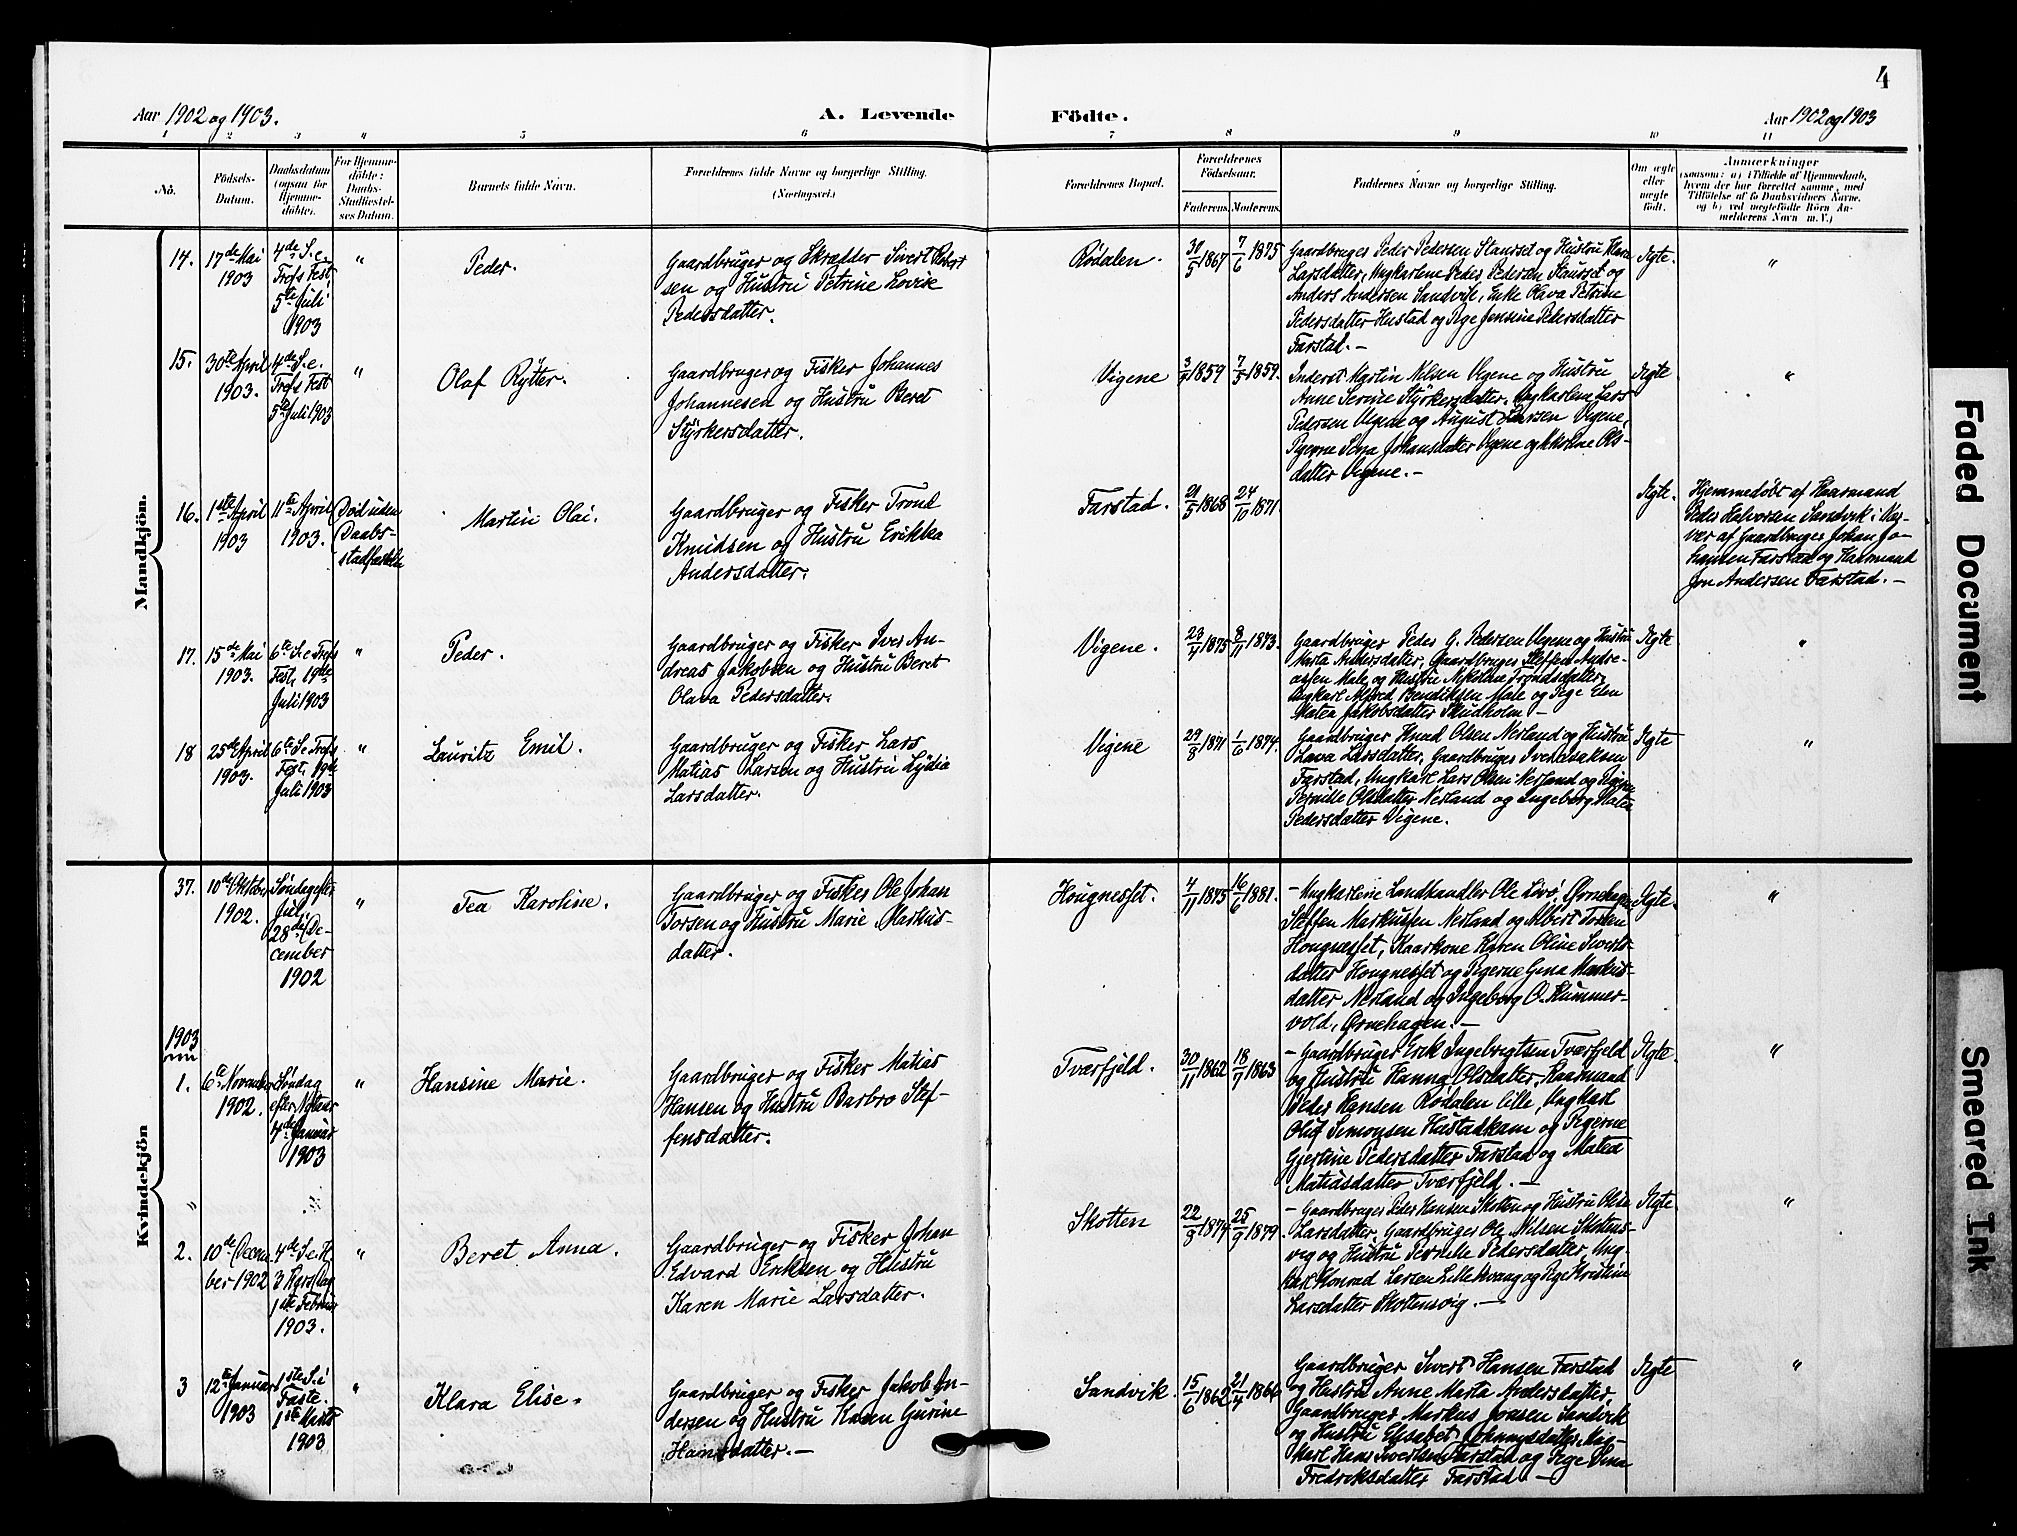 4
Aar 1902 og 1903.
A. Levende
Födte.
Aar 1902 og 1903
1 2 3 4 5 6 7 8 9 10 11
No.
Födsels-
Datum.
Daabsdatum
(ogsaa for
Hjemme-
döbte).
For Hjemme-
döbte:
Daabs-
Stadfæstel-
ses Datum.
Barnets fulde Navn.
Forældrenes fulde Navne og borgerlige Stilling.
(Næringsvei.)
Forældrenes Bopæl.
Forældrenes
Födselsaar.
Faderens.
Moderens.
Faddernes Navne og borgerlige Stilling.
Om ægte
eller
uægte
födt.
Anmærkninger
(saasom: a) i Tilfælde af Hjemmedaab,
hvem der har forrettet samme, med
Tilföielse af to Daabsvidners Navne,
og b) ved uægtefödte Börn An-
melderens Navn m. V.)
Mandkjön.
14.
17de Mai
1903
4de S. e.
Trefs Fest
5te Juli
1903
"
Peder.
Gaardbruger og Skrædder Sivert
sen og Hustru Petrine Lovise
Pedersdatter.
Rødalen
31/5 1867
7/6 1875
Gaardbruger Peder Pedersen Stavset og Hustru
Larsdatter, Ungkarlene Peder Pedersen Stavset og
Anders Andersen Sandvik, Enke Olava Petrine
Pedersdatter Hustad og Pige Jensine Pedersdatter
Farstad. –
Ægte.
"
15.
30te April
1903.
4de S. e.
Trefs Fest
5te Juli 1903
"
Olaf Rytter.
Gaardbruger og Fisker Johannes
Johannesen og Hustru Beret
Styrkersdatter.
Vigene
1859
7/5 1859.
Inderst Martin Nilsen Vigene og Hustru
Anne Serine Styrkersdatter, Ungkarlene Lars
Pedersen Vigene og August Larsen Vigene,
Pigerne Johansdatter Vigene og Ols-
datter Vigene. –
Ægte
"
16.
1ste April
1903
11te April
1903.
Död uden
Daabs-
stadfæstelse
Martin Olai.
Gaardbruger og Fisker Trond
Knudsen og Hustru Erikka
Andersdatter.
Farstad.
21/5 1868
24/10 1871.
Ægte.
Hjemmedøbt af Kaarmand
Peder Halvorsen Sandvik i Nær-
vær af Gaardbruger Johan Jo-
hansen Farstad og Kaarmand
Jon Andersen Farstad. –
17.
15de Mai
1903.
6te S. e Trefs
Fest, 19de
Juli 1903
"
Peder.
Gaardbruger og Fisker Iver An-
dreas Jakobsen og Hustru Beret
Olava Pedersdatter.
Vigene.
23/4 1875
8/11 1873.
Gaardbruger Peder G. Pedersen Vigene og Hustru
Marta Andersdatter, Gaardbruger Steffen Andre-
assen Male og Hustru Nikoline Trondsdatter,
Ungkarl Alfred Bendiksen Male og Pige Elen
Matea Jakobsdatter Skudholm –
Ægte
"
18
25de April
1903.
6te S. e Trefs
Fest, 19de
Juli 1903
"
Lauritz Emil.
Gaardbruger og Fisker Lars
Matias Larsen og Hustru Lydia
Larsdatter.
Vigene
29/8 1871
1/6 1874.
Gaardbruger Knud Olsen Nerland og Hustru
Lava Larsdatter, Gaardbruger Iver Isaksen
Farstad, Ungkarl Lars Olsen Nerland og Pigerne
Pernille Olsdatter Nerland og Ingeborg Matea
Pedersdatter Vigene.
Ægte
"
Kvindekjön
37.
10de Oktober
1902.
Søndag efter
Jul,
28de De-
cember
1902
"
Tea Karoline.
Gaardbruger og Fisker Ole Johan
Torsen og Hustru Marie Markus-
datter.
Hougnesset.
4/11 1875
16/6 1881.
– Ungkarlene Landhandler Ole Livö, Ørnehagen
Steffen Markussen Nerland og Albert Torsen
Hougnesset, Kaarkone Karen Oline Siverts-
datter Hougnesset og Pigerne Gina Markus-
datter Nerland og Ingeborg O. Rummer-
vold, Ørnehagen. –
Ægte.
"
1903
1.
6te November
1902.
Søndag
efter Nytaar
4de Januar
1903
"
Hansine Marie.
Gaardbruger og Fisker Matias
Hansen og Hustru Barbro Stef-
fensdatter.
Tværfjeld.
30/11 1862
18/7 1863
– Gaardbruger Erik Ingebrigtsen Tværfjeld
og Hustru Hanna Olsdatter, Kaarmand
Peder Hansen Rødalen lille, Ungkarl
Oluf Simonsen Hustadkam og Pigerne
Gjertine Pedersdatter Farstad og Matea
Matiasdatter Tværfjeld. –
Ægte.
"
"
2.
10de Decem-
ber 1902
4de S. e. H.
3 Kgrs Dag
1ste Februar
1903.
"
Beret Anna.
Gaardbruger og Fisker Johan
Edvard Eriksen og Hustru
Karen Marie Larsdatter.
Skotten
22/8 1874
25/9 1879.
– Gaardbruger Peder Hansen Skotten og Hustru Oline
Larsdatter, Gaardbruger Ole Nilsen Skottens-
vig og Hustru Pernille Pedersdatter, Ung-
karl Konrad Larsen Lillehvang og Pige Kristine
Larsdatter Skottensvig. –
Ægte.
"
3
12te Januar
1903
1ste S. i
Faste.
1ste Marts
1903
"
Klara Elise.
Gaardbruger og Fisker Jakob An-
dersen og Hustru Karen Gurine
Hansdatter. –
Sandvik.
15/6 1862
21/4 1866
Gaardbruger Sivert Hansen Farstad
og Hustru Anne Marta Andersdatter,
Gaardbruger Markus Joasen Sandvik
og Hustru Elisabet Johnnysdatter, Ung-
karl Hans Sivertsen Farstad og Pige
Fredriksdatter Farstad. –
Ægte
"
Faded Document
Smeared Ink